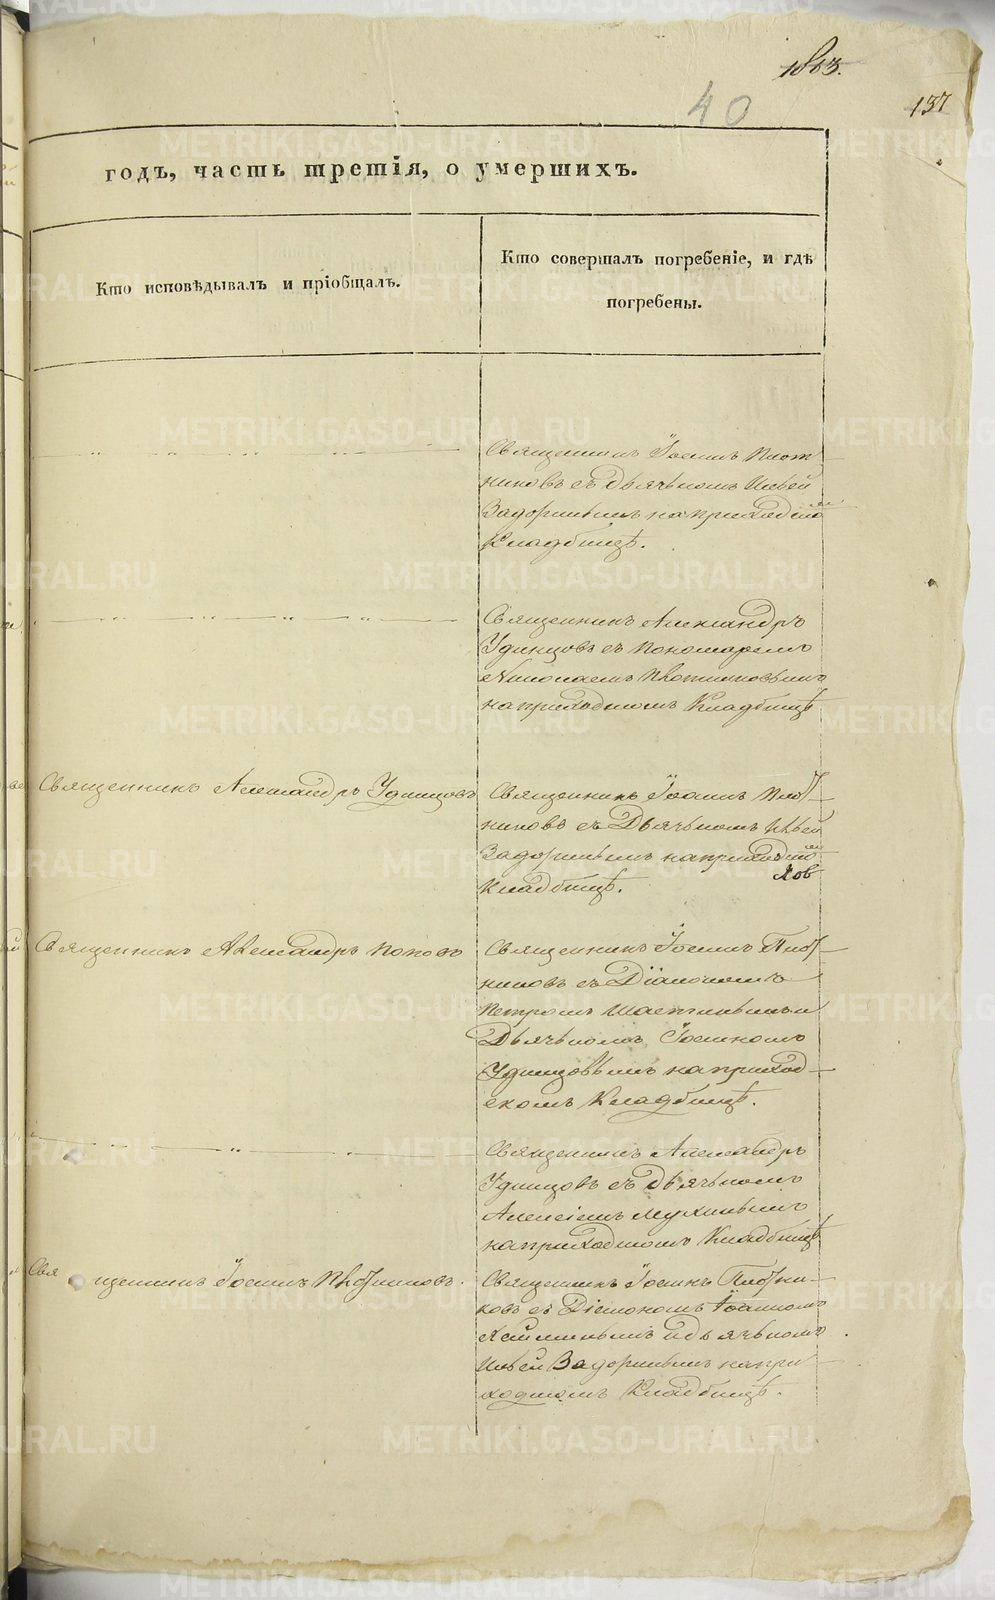 1863.
40
137
годъ, часть третія, о умершихъ.
Кто исповѣдывалъ и пріобщалъ.
Кто совершалъ погребеніе, и гдѣ
погребены.
Священникъ Іоаннъ Плот
никовъ съ дьячькомъ Ильей
Задоринымъ на приходском
Кладбищѣ.
Священникъ Александръ
Удинцовъ съ пономаремъ
Николаемъ Плотниковымъ
на приходскомъ Кладбищѣ
Священникъ Александръ Удинцовъ
Священникъ Іоаннъ Плот
никовъ съ Дьячькомъ Ильей
Задоринымъ на приходском
Кладбищѣ.
Священникъ Александръ Поповъ
Священникъ Іоаннъ Плот
никовъ съ Діакономъ
Петромъ и
Дьячькомъ Іоанномъ
Удинцовымъ на приход
скомъ Кладбищѣ.
Священникъ Александръ
Удинцовъ съ дьячькомъ
Алексіемъ Мухинымъ
на приходскомъ Кладбищѣ
Священникъ Іоаннъ Плотниковъ.
Священникъ Іоаннъ Плотни-
ковъ съ Діакономъ Іоанномъ
и дьячькомъ
Ильей Задоринымъ на при
ходскомъ Кладбищѣ.
METRIKI.GASO-URAL.RU